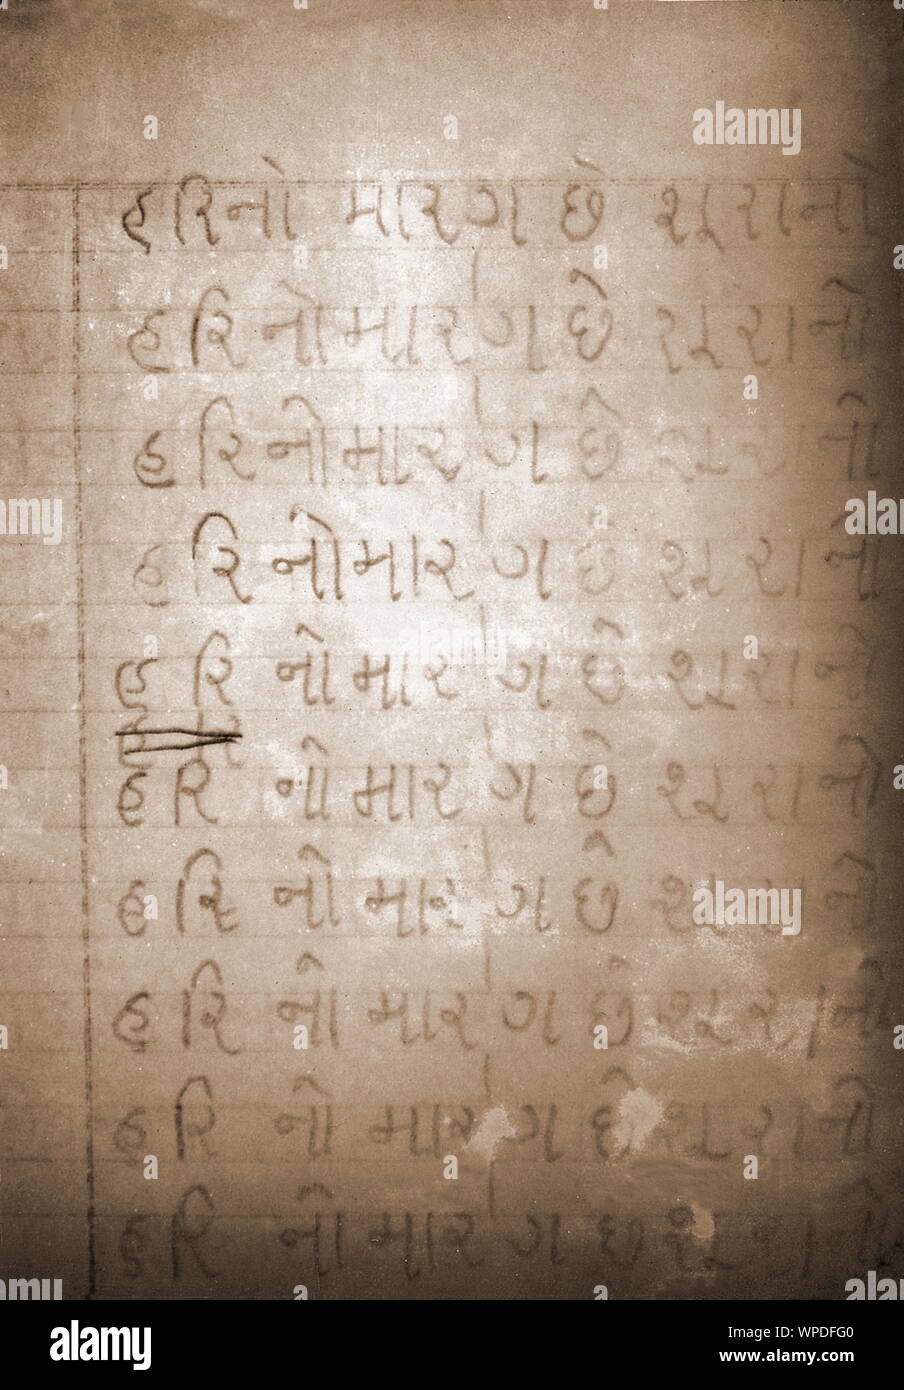 હરિનો મારગ છે શૂરાનો
હરિનો મારગ છે શૂરાનો
હરિનો મારગ છે શૂરાનો
હરિનો મારગ છે શૂરાનો
હરિ નો મારગ છે શૂરાનો
હરિ નો મારગ છે શૂરાનો
હરિ નો મારગ છે શૂરાનો
હરિ નો મારગ છે શૂરાનો
હરિ નો મારગ છે શૂરાનો
હરિ નો મારગ છ શૂરાનો
alamy
alamy
alamy
Image ID: WPDFG0
www.alamy.com